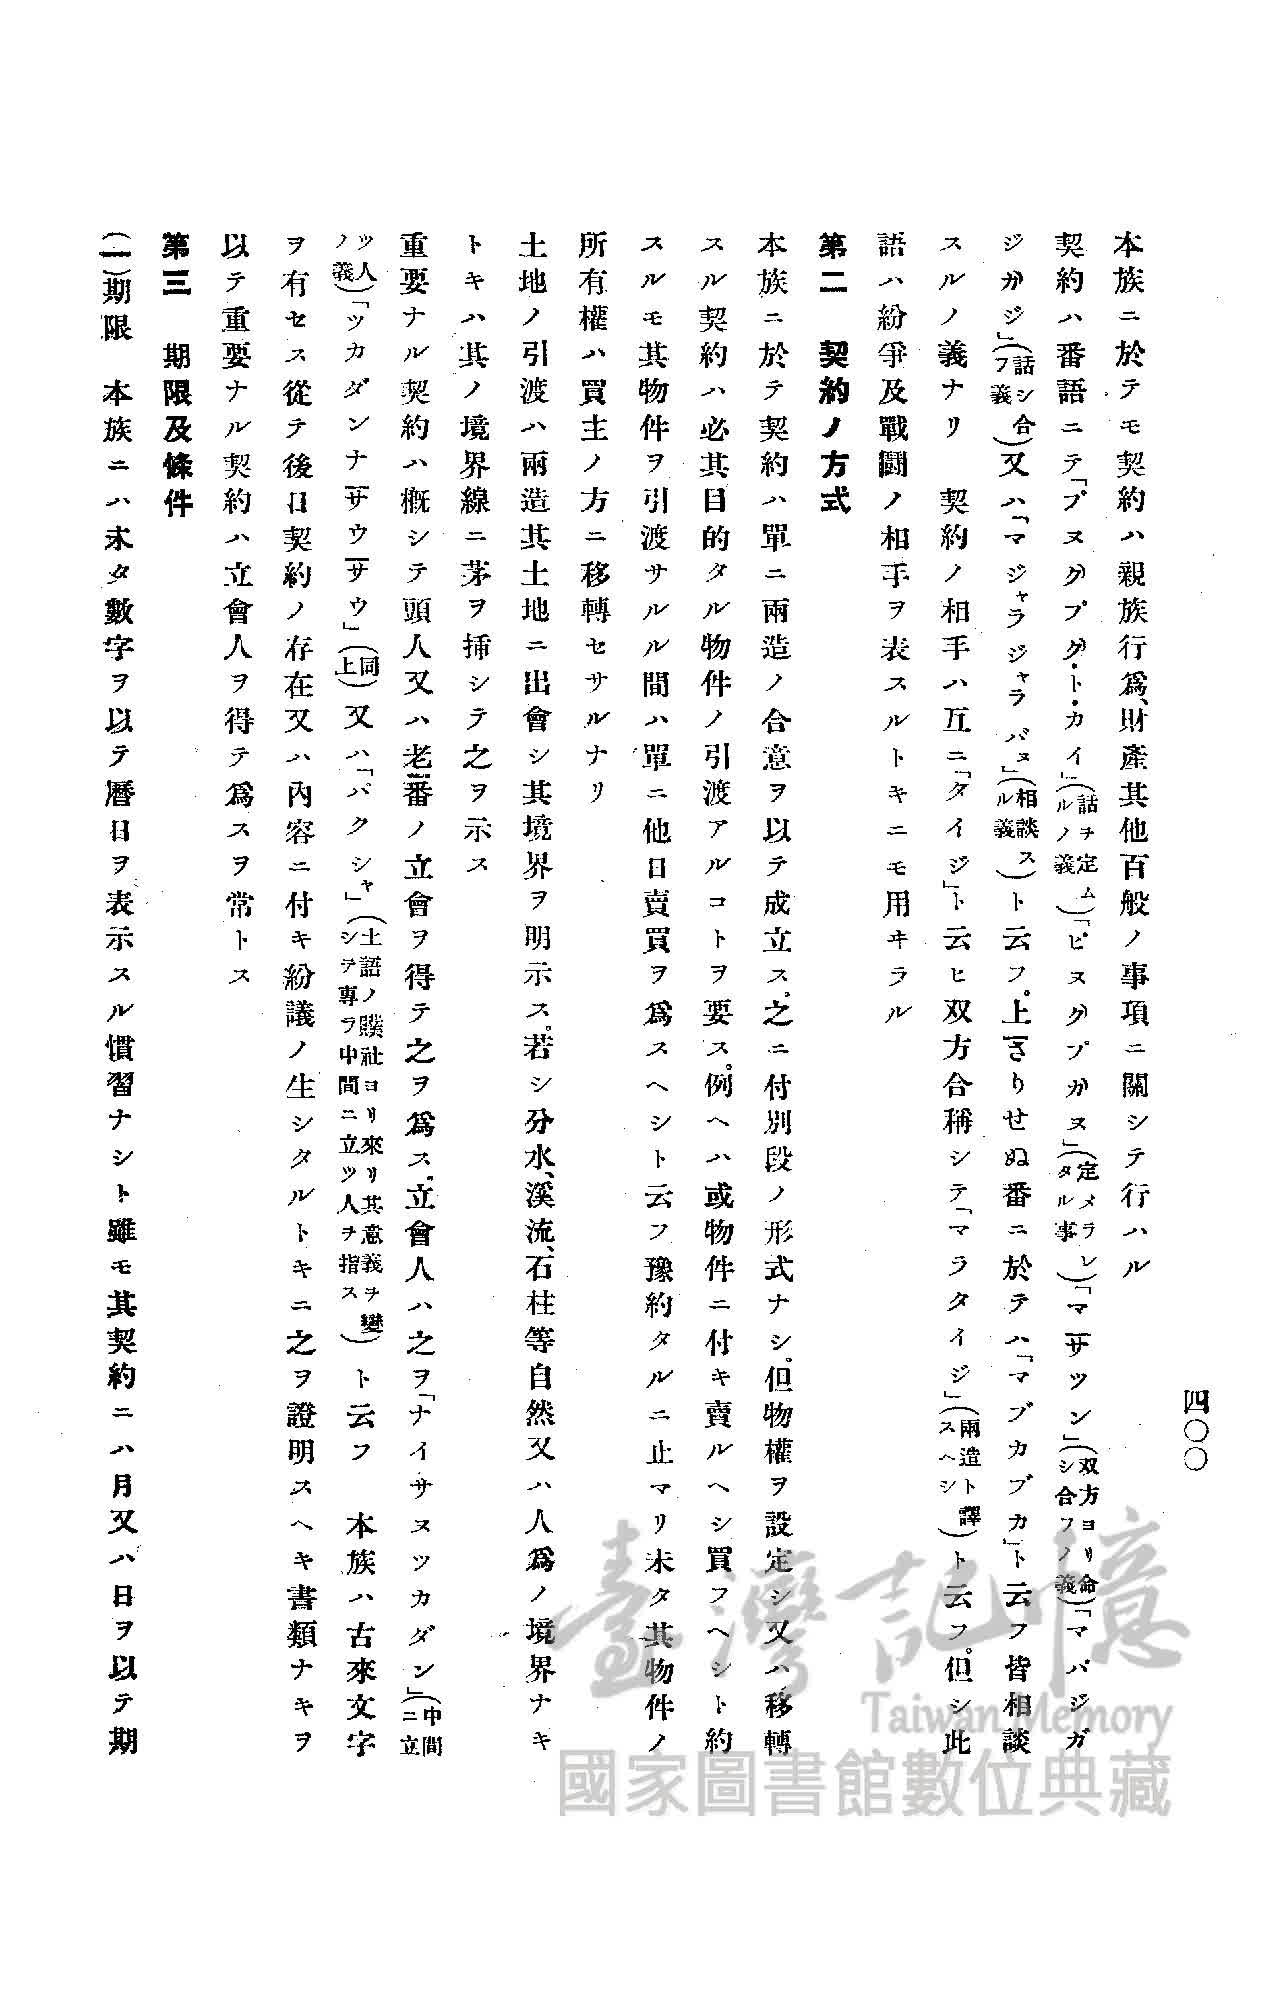 四〇〇
本族ニ於テモ契約ハ親族行爲、財產其他百般ノ事項ニ關シテ行ハル
契約ハ番語ニテ「プヌグプグ・ト・カイ」(話ヲ定ムルノ義)「ピヌグプガヌ」(定メラレタル事)「マサツン」(双方ヨリ命シ合フノ義)「マバジガ
ジガジ」(話シ合フ義)又ハ「マジャラジャラバヌ」(相談スル義)ト云フ。上さりせぬ番ニ於テハ「マブカブカ」ト云フ皆相談
スルノ義ナリ 契約ノ相手ハ互ニ「タイジ」ト云ヒ双方合稱シテ「マラタイジ」(兩造ト譯スヘシ)ト云フ。但シ此
語ハ紛爭及戰鬪ノ相手ヲ表スルトキニモ用ヰラル
第二 契約ノ方式
本族ニ於テ契約ハ單ニ兩造ノ合意ヲ以テ成立ス。之ニ付別段ノ形式ナシ。但物權ヲ設定シ又ハ移轉
スル契約ハ必其目的タル物件ノ引渡アルコトヲ要ス。例ヘハ或物件ニ付キ賣ルヘシ買フヘシト約
スルモ其物件ヲ引渡サルル間ハ單ニ他日賣買ヲ爲スヘシト云フ豫約タルニ止マリ未タ其物件ノ
所有權ハ買主ノ方ニ移轉セサルナリ
土地ノ引渡ハ兩造其土地ニ出會シ其境界ヲ明示ス。若シ分水、溪流、石柱等自然又ハ人爲ノ境界ナキ
トキハ其ノ境界線ニ茅ヲ挿シテ之ヲ示ス
重要ナル契約ハ概シテ頭人又ハ老番ノ立會ヲ得テ之ヲ爲ス。立會人ハ之ヲ「ナイサヌツカダン」(中間ニ立
ツ人ノ義)「ツカダンナサウサウ」(同上)又ハ「バクシャ」(土語ノ贌社ヨリ來リ其意義ヲ變シテ專ラ中間ニ立ツ人ヲ指ス)ト云フ 本族ハ古來文字
ヲ有セス從テ後日契約ノ存在又ハ內容ニ付キ紛議ノ生シタルトキニ之ヲ證明スヘキ書類ナキヲ
以テ重要ナル契約ハ立會人ヲ得テ爲スヲ常トス
第三 期限及條件
(一)期限 本族ニハ未タ數字ヲ以テ曆日ヲ表示スル慣習ナシト雖モ其契約ニハ月又ハ日ヲ以テ期
臺灣記憶
Taiwan Memory
國家圖書館數位典藏